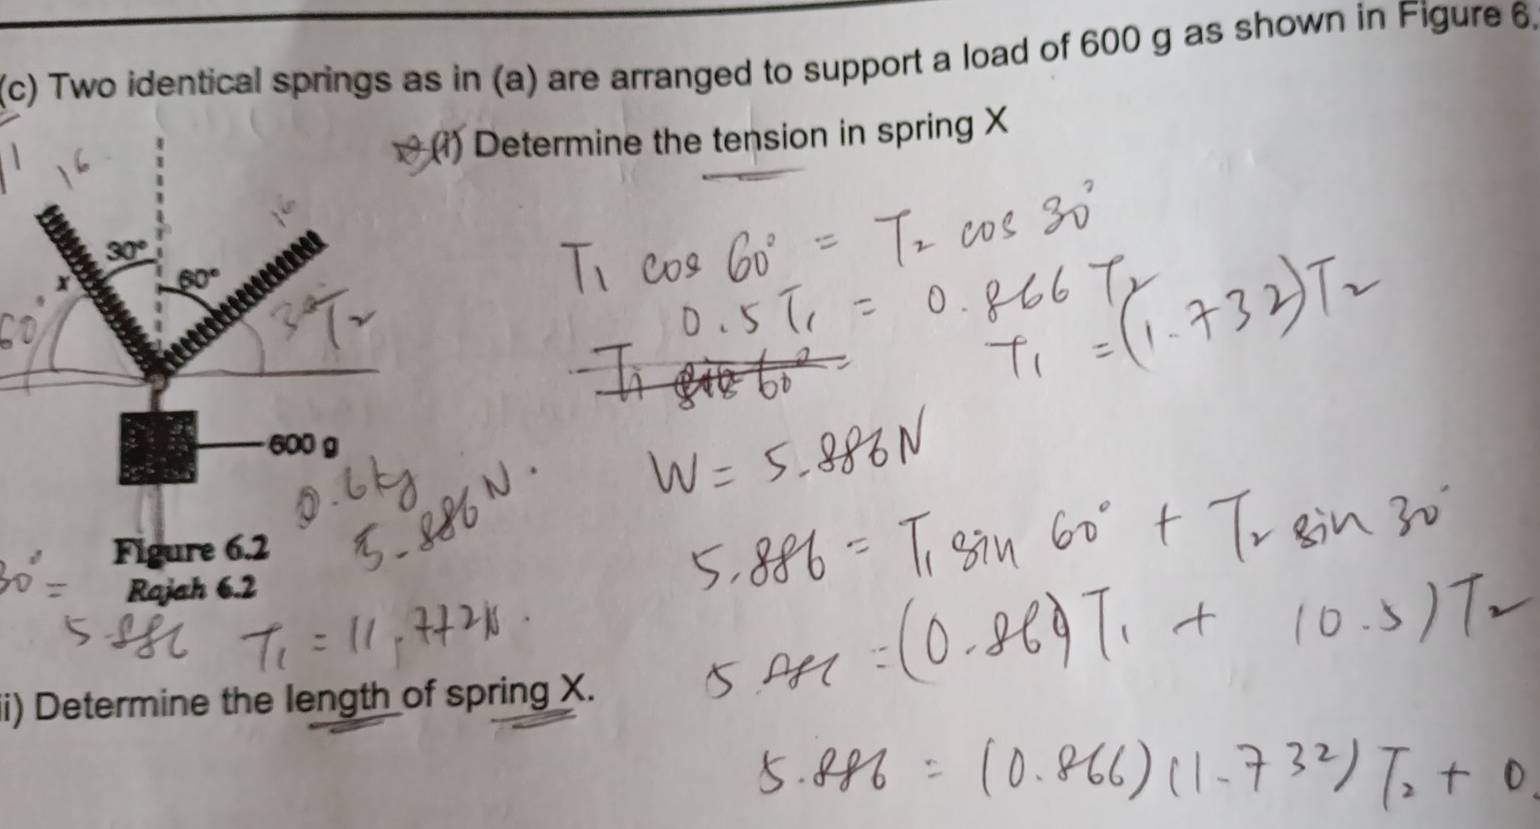 (c) Two identical springs as in (a) are arranged to support a load of 600 g as shown in Figure 6.
(i) Determine the tension in spring X
16
16
30°
60°
x
60°
30°
T₂
T₁ cos 60° = T₂ cos 30°
0.5 T₁ = 0.866 T₂
T₁ = (1.732) T₂
600 g
0.6kg
5.886 N.
W = 5.886 N
5.886 = T₁ sin 60° + T₂ sin 30°
Figure 6.2
Rajah 6.2
30° =
5.886
T₁ = 11.772N.
= (0.866) T₁ + (0.5) T₂
ii) Determine the length of spring X.
5.886 = (0.866) (1.732) T₂ + 0.